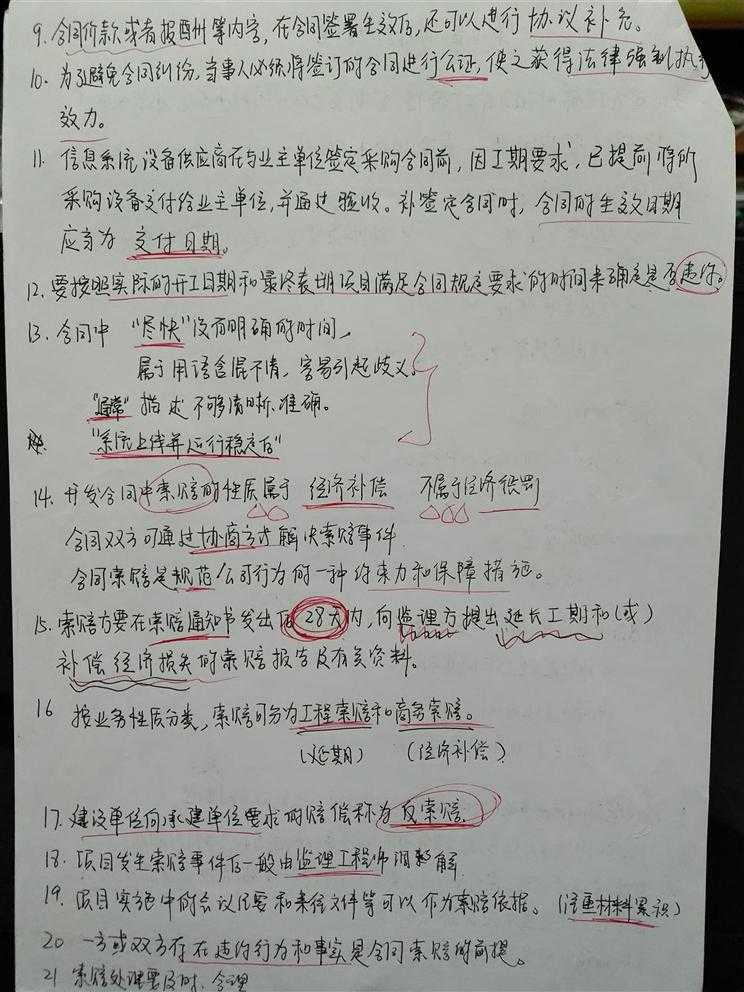 9. 合同价款或者报酬等内容，在合同签署生效后，还可以进行协议补充。
10. 为了避免合同纠纷，当事人必须将签订的合同进行公证，使之获得法律强制执行
效力。
11. 信息系统设备供应商在与业主单位签定采购合同前，因工期要求，已提前将所
采购设备交付给业主单位，并通过验收。补签定合同时，合同的生效日期
应当为 交付日期。
12. 要按照实际的开工日期和最终表明项目满足合同规定要求的时间来确定是否违约。
13. 合同中 "尽快"没有明确的时间，
属于用语含混不清，容易引起歧义。
"通常" 描述不够清晰、准确。
"系统上线并运行稳定后"
14. 开发合同中索赔的性质属于 经济补偿 不属于经济惩罚
合同双方可通过协商方式解决索赔事件
合同索赔是规范公司行为的一种约束力和保障措施。
15. 索赔方要在索赔通知书发出后 28天内，向监理方提出延长工期和(或)
补偿经济损失的索赔报告及有关资料。
16 按业务性质分类，索赔可分为工程索赔和商务索赔。
(延期) (经济补偿)
17. 建设单位向承建单位要求的赔偿称为反索赔.
18. 项目发生索赔事件后一般由监理工程师调解
19. 项目实施中的会议纪要和来往文件等可以作为索赔依据。(注重材料累积)
20 一方或双方存在违约行为和事实是合同索赔的前提。
21 索赔处理要及时、合理